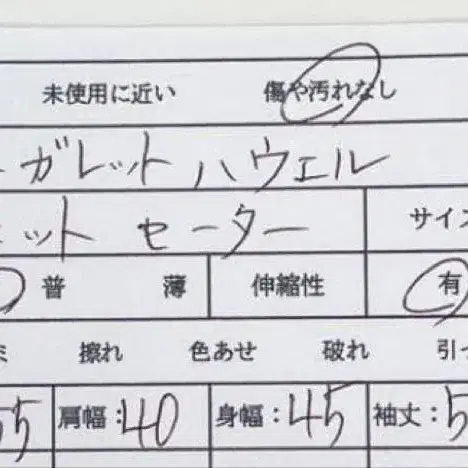 未使用に近い 傷や汚れなし
ーガレット ハウエル
ニット セーター サイズ
普 薄 伸縮性 有
擦れ 色あせ 破れ 引っ
55 肩幅:40 身幅:45 袖丈:5